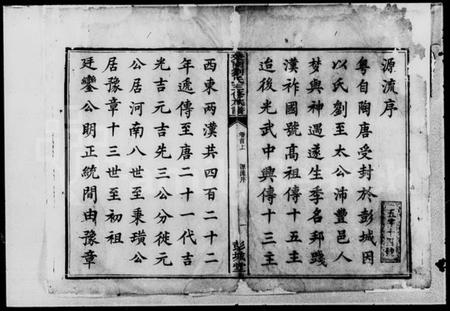 源流序
粵自陶唐受封於彭城因
以氏劉至太公沛豐邑人
夢與神遇遂生季名邦踐
漢祚國號高祖傳十五主
迨後光武中興傳十三主
劉氏
卷首上 源流序
彭城堂
西東兩漢共四百二十二
年遞傳至唐二十一代吉
光吉元吉先三公分徙元
公居河南八世至秉璜公
居豫章十三世至初祖
廷鑾公明正統間由豫章